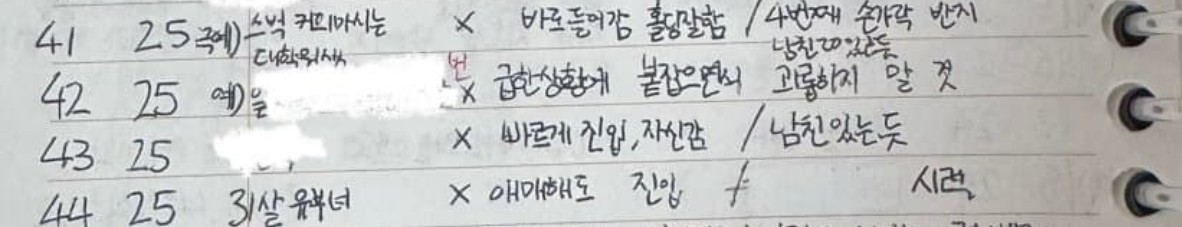 41 25 극예) 스벅 커피마시는 대학원생 × 바로들어감 홀딩말함 / 4번째 손가락 반지 남친 있는듯
42 25 예) 을 번 × 급한상황에 붙잡으면서 괴롭히지 말 것
43 25 × 빠르게 진입, 자신감 / 남친있는듯
44 25 31살 유부녀 × 애매해도 진입 / 시력